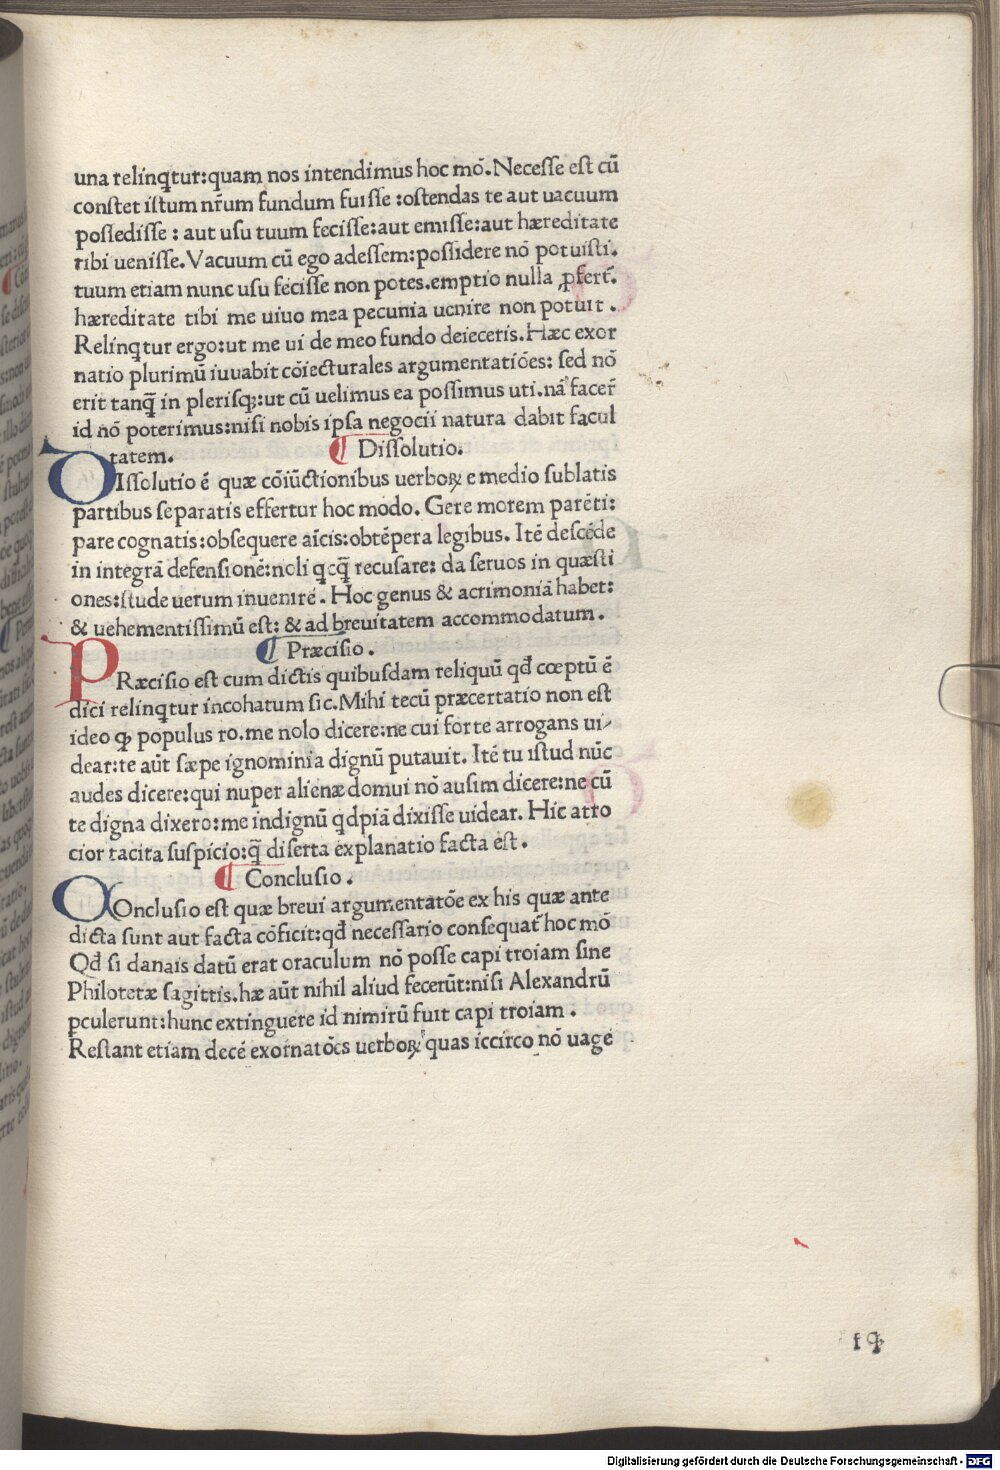 una relinq̃tur:quam nos intendimus hoc mõ.Necesse est cũ
constet istum nr̃um fundum fuisse :ostendas te aut uacuum
possedisse : aut usu tuum fecisse:aut emisse:aut hæreditate
tibi uenisse.Vacuum cũ ego adessem:possidere nõ potuisti.
tuum etiam nunc usu fecisse non potes.emptio nulla ꝓfert̃.
hæreditate tibi me uiuo mea pecunia uenire non potuit .
Relinq̃tur ergo:ut me ui de meo fundo deieceris.Hæc exor
natio plurimũ iuuabit cõiecturales argumentatiões: sed nõ
erit tanq̃ in plerisq;:ut cũ uelimus ea possimus uti.nã facer̃
id nõ poterimus:nisi nobis ipsa negocii natura dabit facul
tatem.
¶ Dissolutio.
DIssolutio ẽ quæ cõiũctionibus uerboꝝ e medio sublatis
partibus separatis effertur hoc modo. Gere morem parẽti:
pare cognatis:obsequere aĩcis:obtẽpera legibus. Itẽ descẽde
in integrã defensionẽ:noli qcq̃ recusare: da seruos in quæsti
ones:stude uerum inuenire. Hoc genus & acrimoniã habet:
& uehementissimũ est: & ad breuitatem accommodatum .
¶ Præcisio .
PRæcisio est cum dictis quibusdam reliquũ qđ cœptũ ẽ
dici relinq̃tur incohatum sic.Mihi tecũ præcertatio non est
ideo ꝙ populus ro.me nolo dicere:ne cui forte arrogans ui-
dear:te aũt sæpe ignominia dignũ putauit. Itẽ tu istud nũc
audes dicere:qui nuper alienæ domui nõ ausim dicere:ne cũ
te digna dixero:me indignũ qdpiã dixisse uidear. Hic atro
cior tacita suspicio:q̃ diserta explanatio facta est .
¶ Conclusio .
COnclusio est quæ breui argumentatõe ex his quæ ante
dicta sunt aut facta cõficit:qđ necessario consequat̃ hoc mõ
Qđ si danais datũ erat oraculum nõ posse capi troiam sine
Philotetæ sagittis.hæ aũt nihil aliud fecerũt:nisi Alexandrũ
pculerunt:hunc extinguere id nimirũ fuit capi troiam .
Restant etiam decẽ exornatões uerboꝝ quas iccirco nõ uage
Digitalisierung gefördert durch die Deutsche Forschungsgemeinschaft - DFG